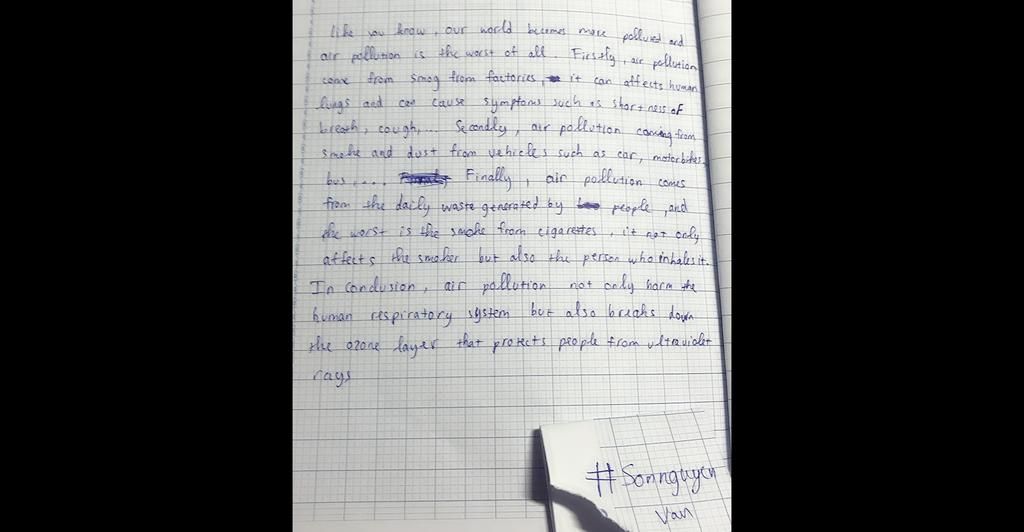 like you know, our world becomes more polluted and
air pollution is the worst of all. Firstly, air pollution
come from smog from factories, it can affects human
lungs and can cause symptoms such as shortness of
breath, cough,... Secondly, air pollution coming from
smoke and dust from vehicles such as car, motorbikes,
bus .... Finally, air pollution comes
from the daily waste generated by people, and
the worst is the smoke from cigarettes, it not only
affects the smoker but also the person who inhales it.
In conclusion, air pollution not only harm the
human respiratory system but also breaks down
the ozone layer that protects people from ultraviolet
rays
#Sonnguyen
Van